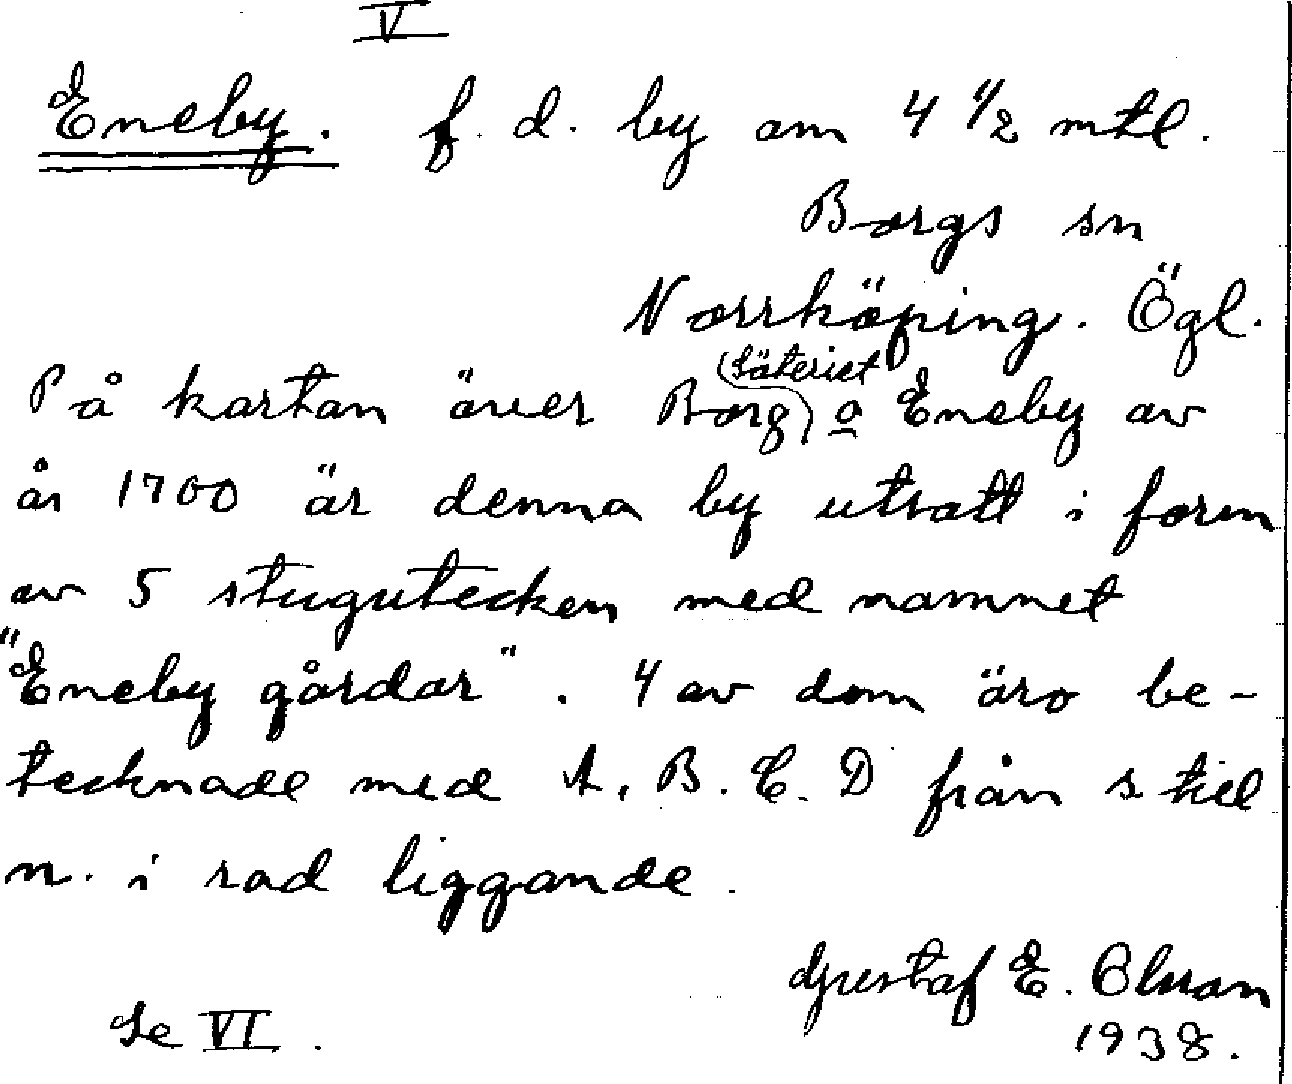 V
Eneby. f. d. by om 4 1/2 mtl.
Borgs sn
Norrköping. Ögl.
(Säteriet)
På kartan över Borg o Eneby av
år 1700 är denna by utsatt i form
av 5 stugutecken med namnet
"Eneby gårdar". 4 av dem äro be-
tecknade med A. B. C. D från s till
n. i rad liggande.
Gustaf E. Olsson
Se VI. 1938.